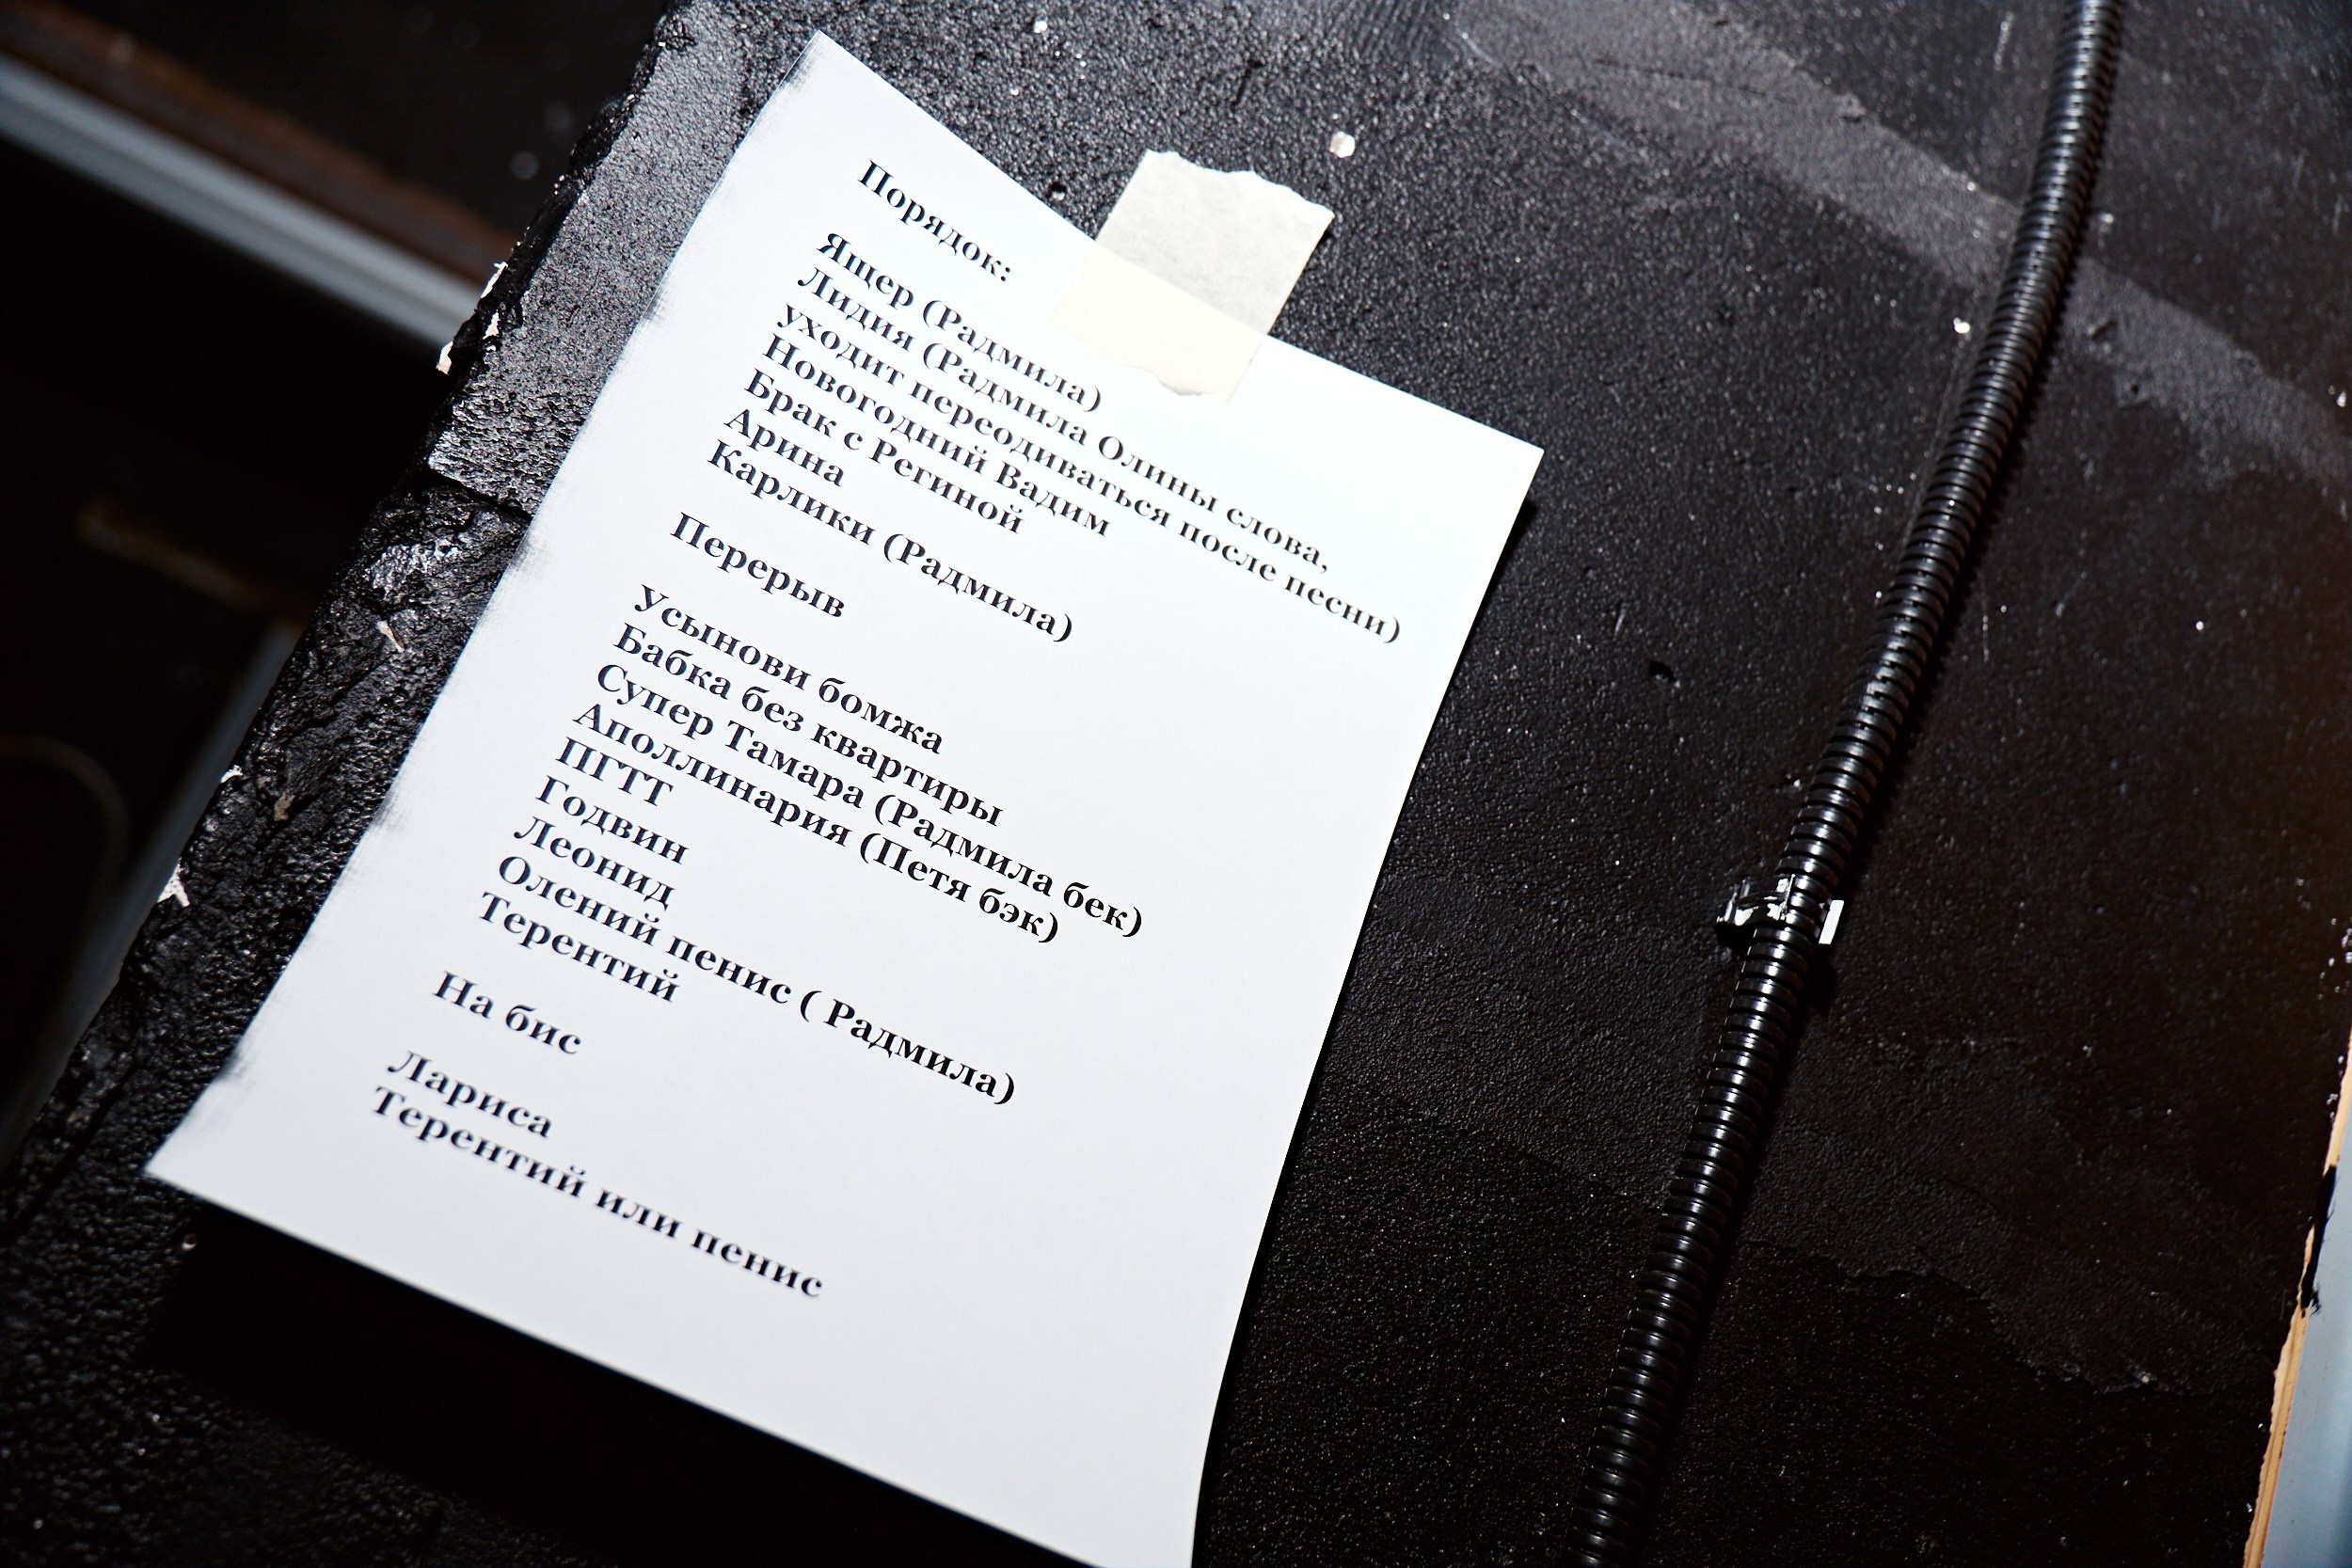 Порядок:
Ящер (Радмила)
Лидия (Радмила Олины слова,
уходит переодиваться после песни)
Новогодний Вадим
Брак с Региной
Арина
Карлики (Радмила)
Перерыв
Усынови бомжа
Бабка без квартиры
Супер Тамара (Радмила бек)
Аполлинария (Петя бэк)
ПГТТ
Годвин
Леонид
Олений пенис ( Радмила)
Терентий
На бис
Лариса
Терентий или пенис